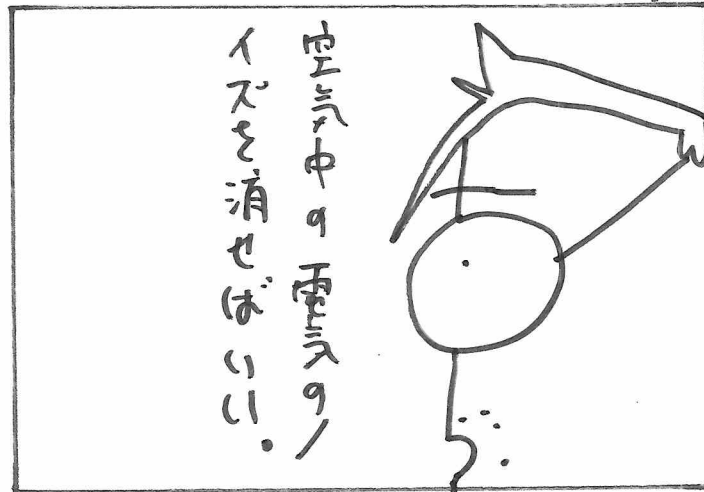 空気中の電気のノ
イズを消せばいい.